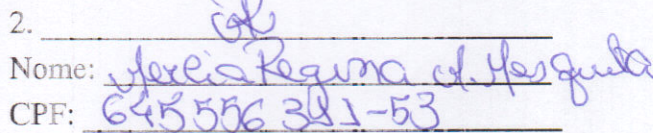 2.
Nome: Regina A. Mesquita
CPF: 645 556 391-53